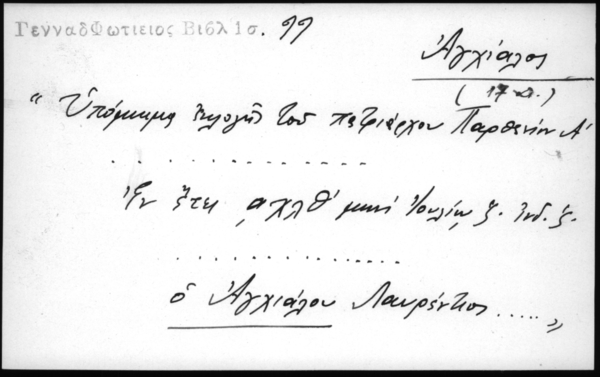 ΓενναδΦωτιειος Βιβλ 1σ. 99
Ἀγχίαλος
(17 αι.)
"Ὑπόμνημα ἐκλογῆς τοῦ πατριάρχου Παρθενίου Α'
. . . . . . . . . . . . . . .
Ἐν ἔτει ͵αχλθ' μηνὶ Ἰουλίῳ ξ. ἰνδ. ξ.
. . . . . . . . . . . . . . .
ὁ Ἀγχιάλου Λαυρέντιος ....."